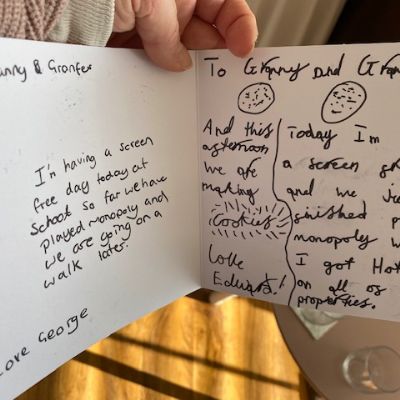 nny & Gronfer
I'n having a screen
free day today at
school so far we have
played monopoly and
we are going on a
walk later.
Love George
To Granny and Gran
And this
afternoon
we are
making
cookies
Love
Edward!
Today I'm
a screen
and we
finished
monopoly
I got Hot
on all of
properties.